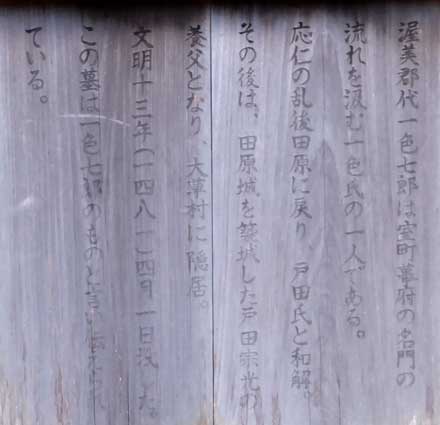 渥美郡代一色七郎は室町幕府の名門の
流れを汲む一色氏の一人である。
応仁の乱後田原に戻り 戸田氏と和解。
その後は、田原城を築城した戸田宗光の
養父となり、大草村に隠居。
文明十三年(一四八一)四月一日没した。
この墓は一色七郎のものと言い伝えられ
ている。